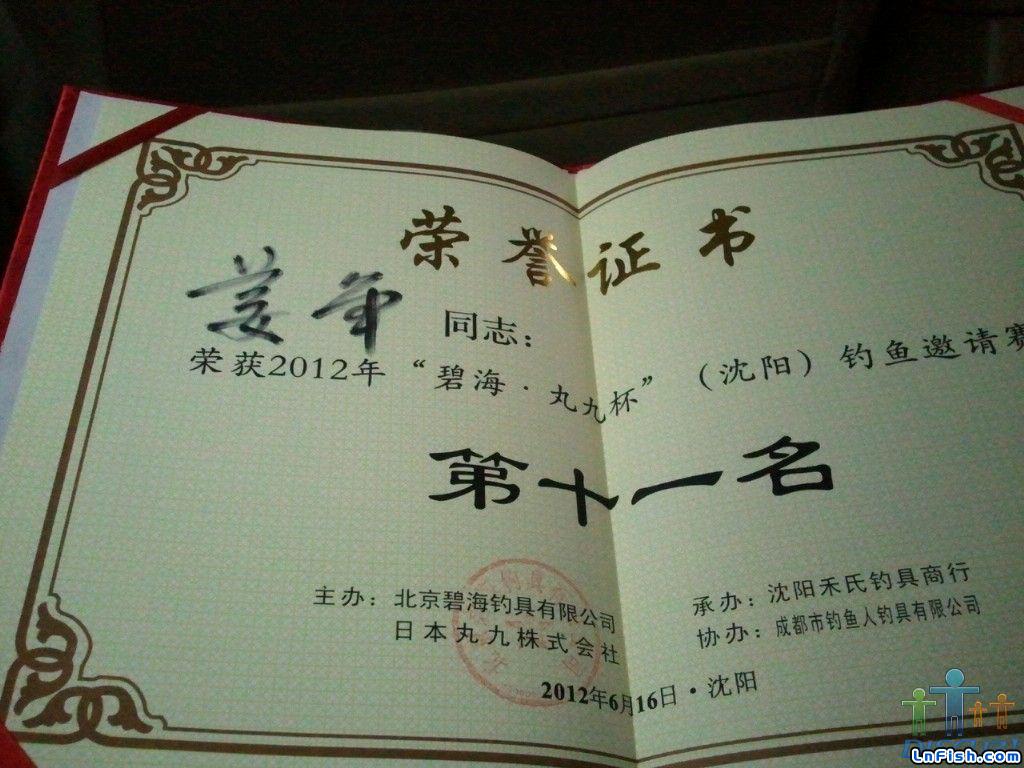 荣誉证书
姜军 同志：
荣获2012年“碧海·丸九杯”（沈阳）钓鱼邀请赛
第十一名
主办：北京碧海钓具有限公司
日本丸九株式会社
承办：沈阳禾氏钓具商行
协办：成都市钓鱼人钓具有限公司
2012年6月16日·沈阳
LnFish.com